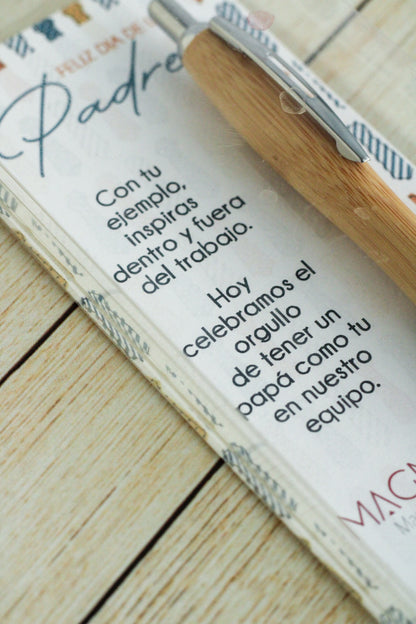 FELIZ DIA DE
Padre
Con tu
ejemplo,
inspiras
dentro y fuera
del trabajo.
Hoy
celebramos el
orgullo
de tener un
papá como tu
en nuestro
equipo.